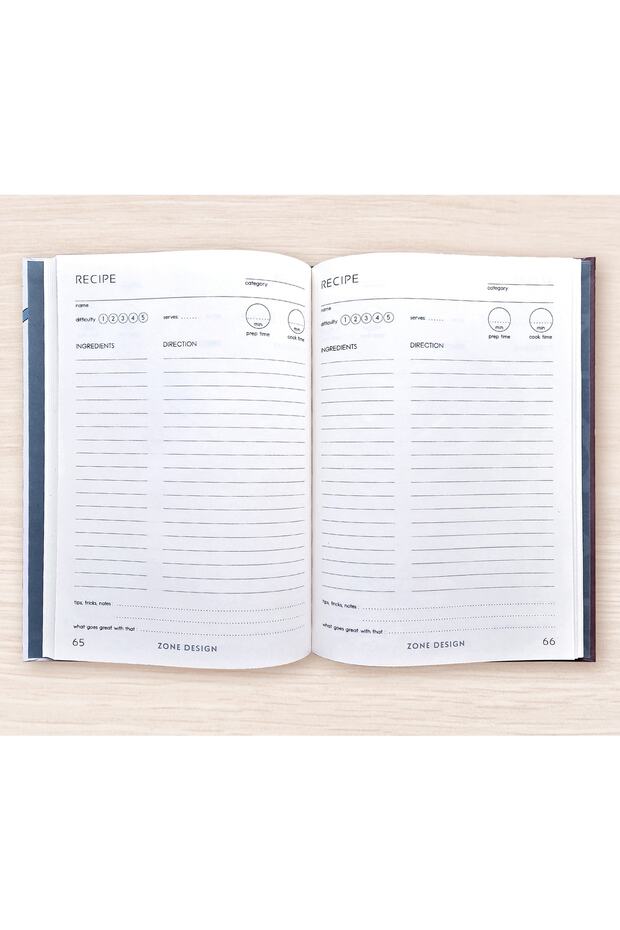 RECIPE
category
name
difficulty 1 2 3 4 5 serves ......
min min
prep time cook time
INGREDIENTS DIRECTION
tips, tricks, notes
what goes great with that :
65 ZONE DESIGN
RECIPE
category
name
difficulty 1 2 3 4 5 serves ......
min min
prep time cook time
INGREDIENTS DIRECTION
tips, tricks, notes
what goes great with that :
ZONE DESIGN 66